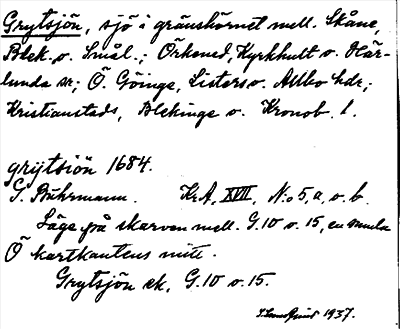 Grytsjön, sjö i gränshörnet mell. Skåne,
Blek. o. Smål.; Örkened, Kyrkhult o. Här-
lunda snr; Ö. Göinge, Listers o. Allbo hdr;
Kristianstads, Blekinge o. Kronob. l.
grÿtsiön 1684.
G. Buhrmann. KrA, XVII, N:o 5, a, o. b.
Läge på skarven mell. G. 10 o. 15, en smula
Ö kartkantens mitt.
Grytsjön ek, G. 10 o. 15.
1937.